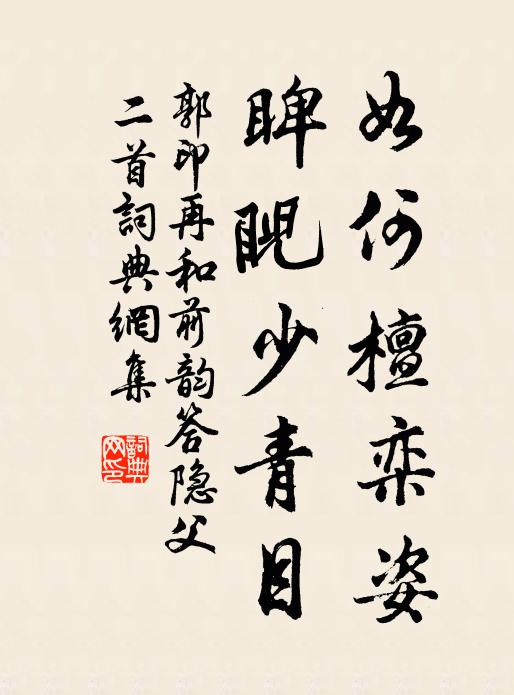 如何檀栾姿
睥睨少青目
郭印再和前韵答隐父
二首詞典網集
詞典网印